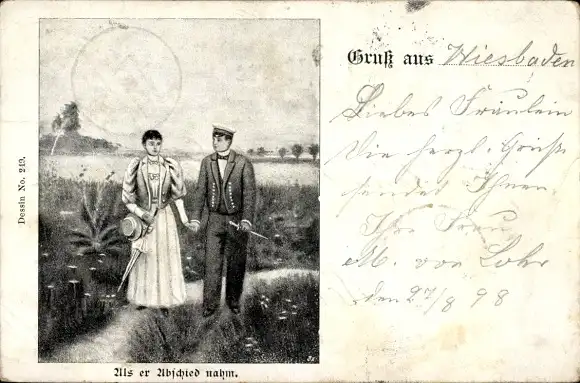 Gruß aus Wiesbaden
Liebes Fräulein
Die herzl. Grüße
sendet Ihnen
Ihre Frau
M. von Lohr
den 27/8 98
Dessin No. 249.
Als er Abschied nahm.